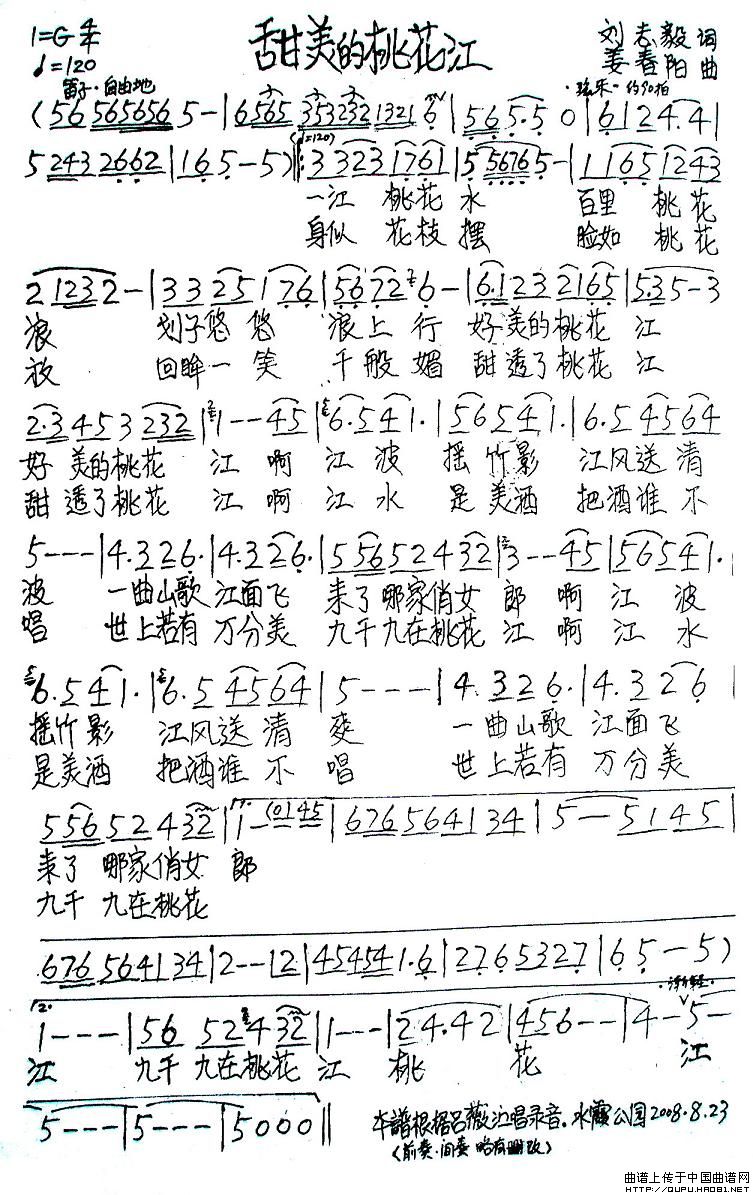 甜美的桃花江
1=G 4/4
♩=120
刘志毅 词
姜春阳 曲
笛子·自由地
(56 565656 5-|6565 353232 1321 6|56 5.5 0|6124.4|
5 2432662|165-5)(♩=120)‖:3 323 1761|5 56765-|1165 1243
一江 桃花 水 百里 桃花
身似 花枝 摆 脸如 桃花
2 1232-|33251 76|56726-|6.123 2165|5.35-3
浪 划子悠悠 浪上行 好美的桃花 江
放 回眸一笑 千般媚 甜透了桃花 江
2.3 45 3 232|1--45|6.541.|56541.|6.54564
好美的桃花 江啊 江波 摇竹影 江风送清
甜透了桃花 江啊 江水 是美酒 把酒谁不
5---|4.326.|4.326.|556524 32|3--45|56541.|
波 一曲山歌 江面飞 来了哪家俏女 郎啊 江波
唱 世上若有 万分美 九千九在桃花 江啊 江水
6.541.|6.54564|5---|4.326.|4.326
摇竹影 江风送清 爽 一曲山歌 江面飞
是美酒 把酒谁不 唱 世上若有 万分美
556524 32|1.1-(0145|6765641 34|5--5145|
来了 哪家俏女 郎
九千 九在桃花
6765641 34|2--12|454541.6|2765327|65-5)
12.
1---|56 524 32|1---|24.42|456--|4-5-
江 九千 九在桃花 江 桃 花 江
5---|5---|5000‖
本谱根据吕薇演唱录音.水霞公园2008.8.23
(前奏·间奏 略有删改)
曲谱上传于中国曲谱网
HTTP://QUPU.HAO81.NET